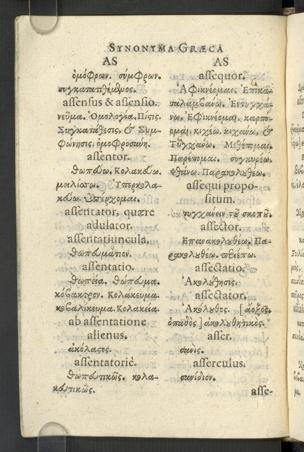 SYNONYMA GRÆCA
AS
ὁμόφρων. σύμφρων.
συγκατατεθειμένος.
assensus & assensio.
νεῦμα. Ὁμολογία. Πίστις.
Συγκατάθεσις, & Συμ-
φώνησις. ὁμοφροσύνη.
assentor.
θωπεύω. Κολακεύω.
μειλίσσω. Ὑπερκολα-
κεύω. Ὑπέρχομαι.
assentator, quære
adulator.
assentatiuncula.
θωπευμάτιον.
assentatio.
θωπεία. θώπευμα.
Κολάκευμα.
Κολακεία.
ab assentatione
alienus.
assentatoriè.
θωπευτικῶς. κολα-
κευτικῶς.
AS
assequor.
Ἀφικνέομαι. Ἐπικα-
ταλαμβάνω. Ἐντυγχά-
νω. Ἐφικνέομαι.
κιχέω. κιχάνω, &
Τυγχάνω.
Παρέπομαι. συγκυρέω.
φθάνω. Παρακολουθέω.
assequi propo-
situm.
τυγχάνειν τῦ σκοπῦ.
assector.
Ἐπακολουθέω. Πα-
ρακολουθέω.
assectatio.
Ἀκολούθησις.
assectator.
Ἀκόλουθος.
ὀπαδὸς] ἀκολουθητικός.
asser.
σανίς.
asserculus.
σανίδιον.
asse-